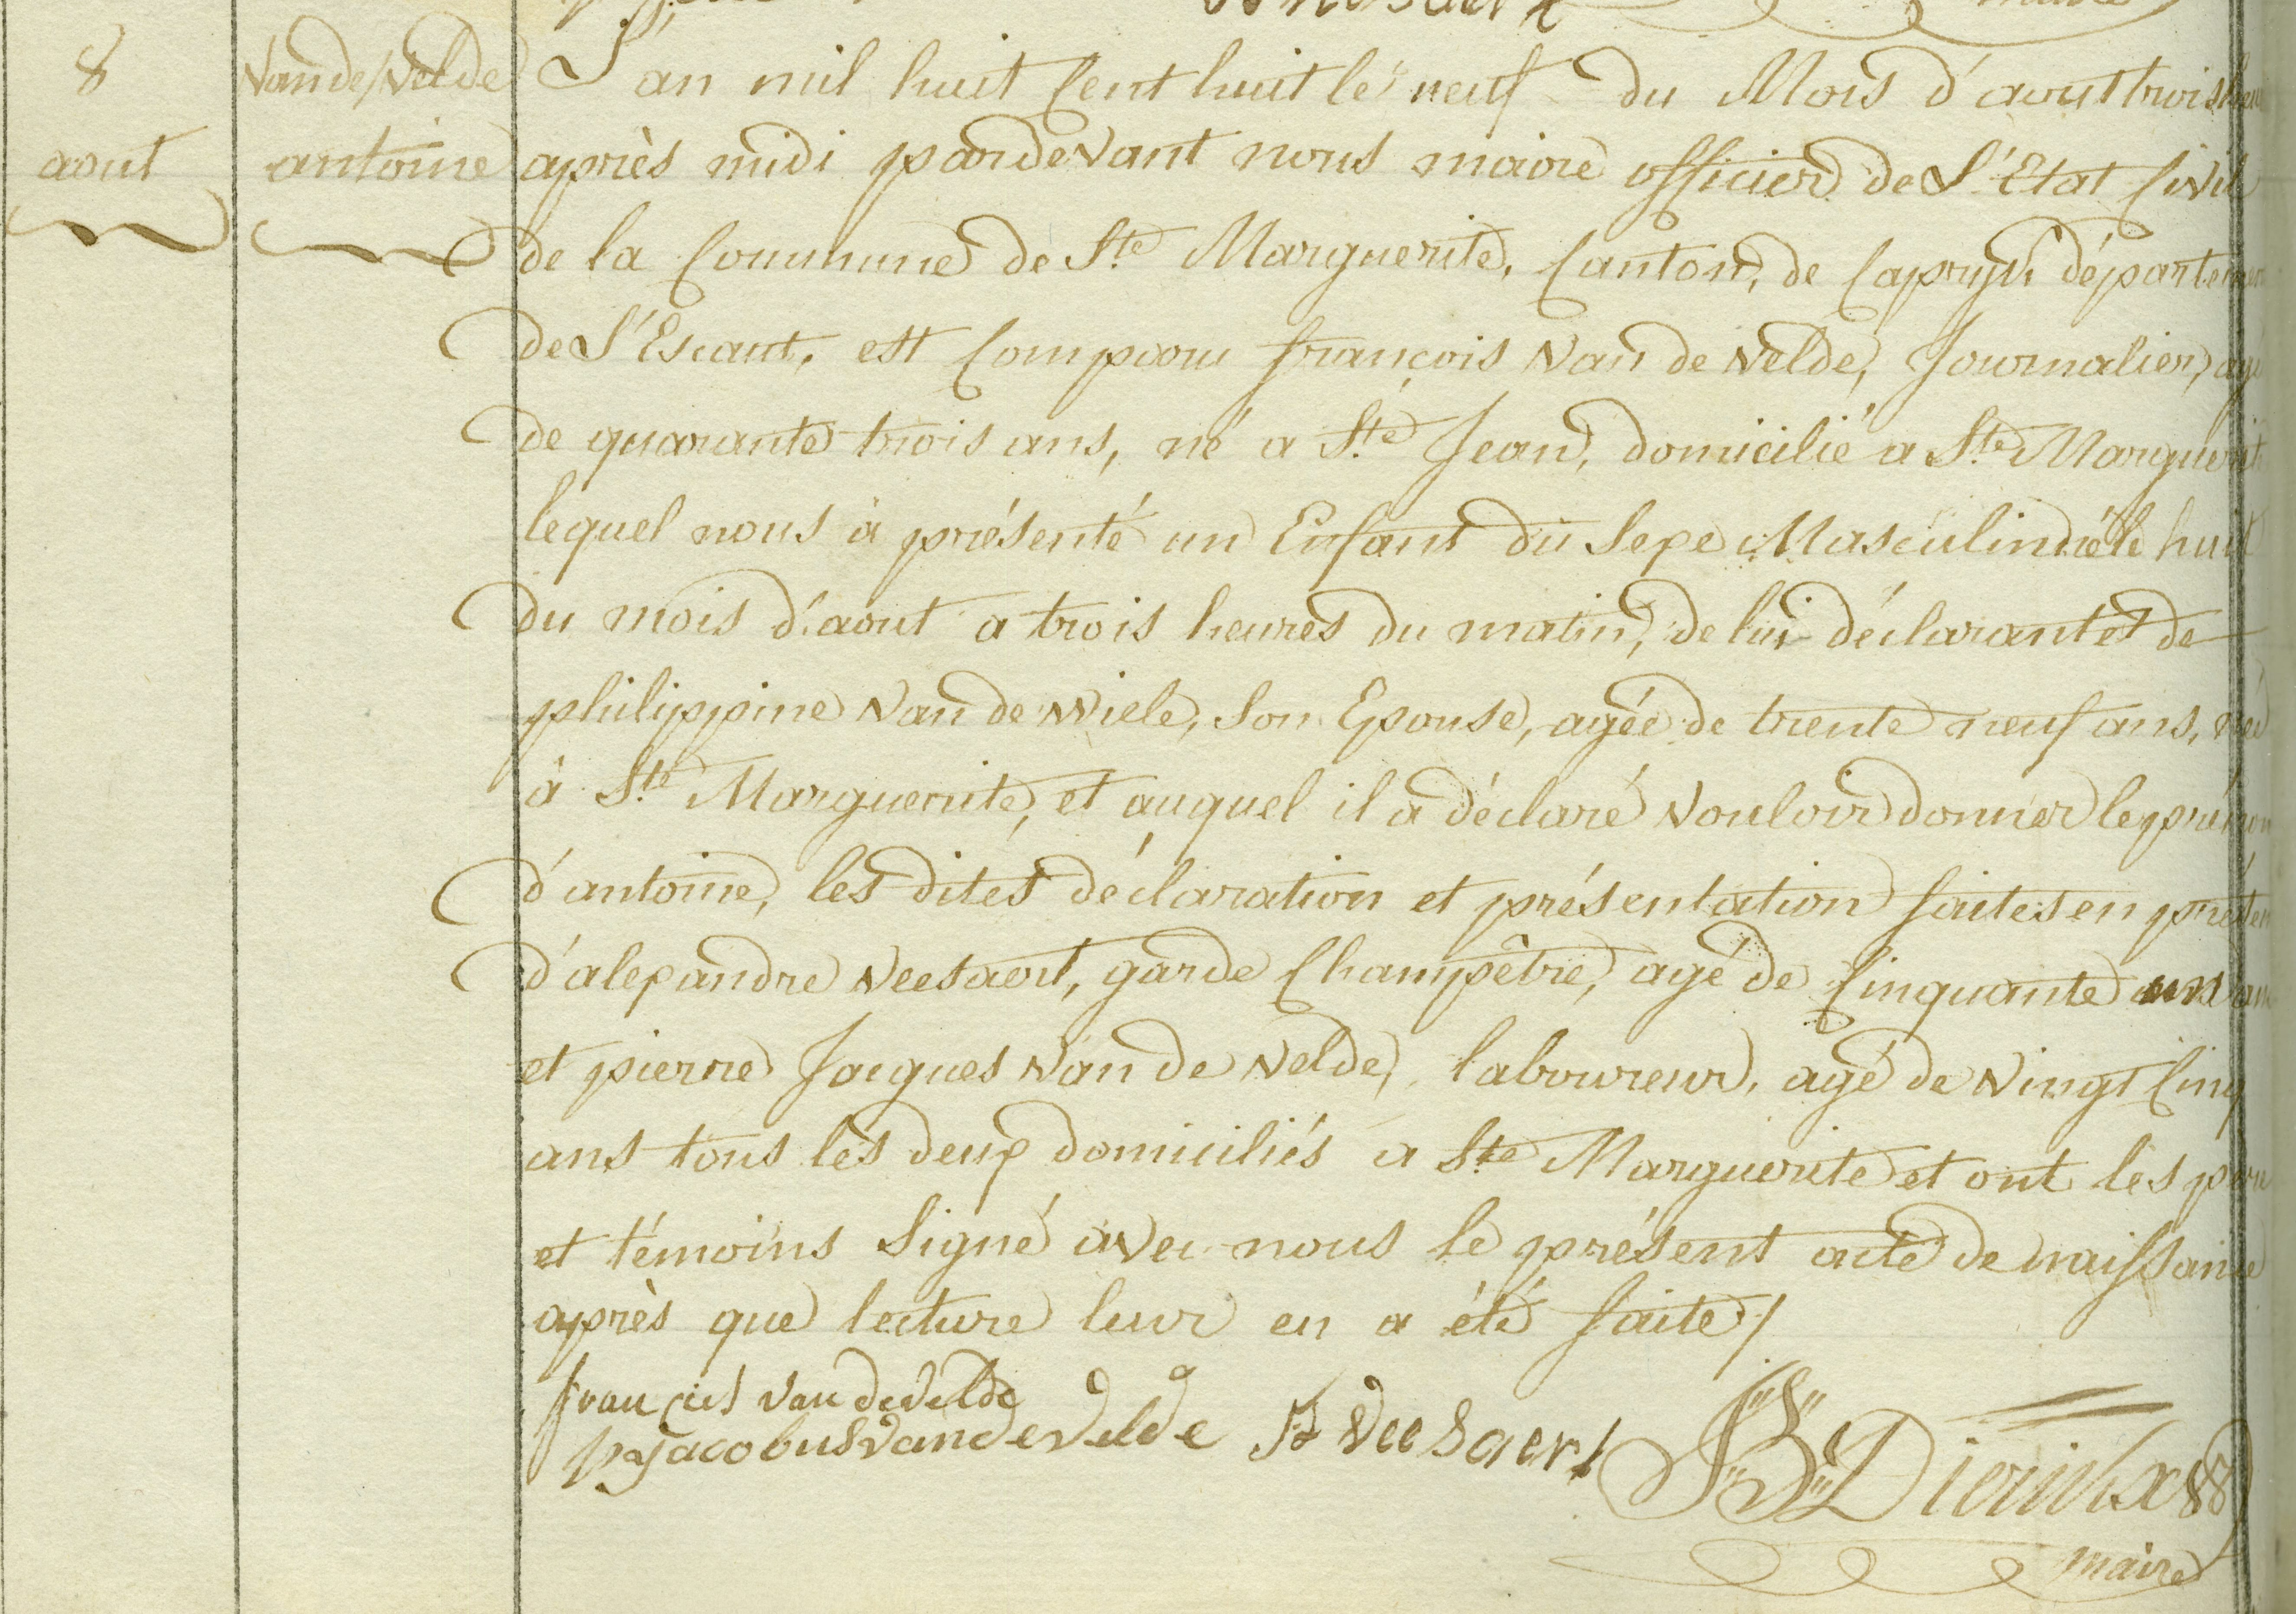 8
aout
Van de Velde
antoine
L'an mil huit Cent huit le neuf du Mois d'aout trois
après midi pardevant nous maire officier de L'Etat Civil
de la Commune de Ste Marguerite, Canton, de Capryck département
de L'Escaut, est Comparu françois Van de Velde, Journalier, agé
de quarante trois ans, né a Ste Jean, domicilié a Ste Marguerite
lequel nous à présenté un Enfant du Sexe Masculin né le huit
du mois d'aout a trois heures du matin, de lui déclarant et de
philippine Van de Wiele, Son Epouse, agée de trente neuf ans, née
à Ste Marguerite, et auquel il a déclaré Vouloir donner le prénom
d'antoine, les dites déclaration et présentation faites en
d'alexandre Veesaert, garde Champêtre, agé de Cinquante un ans
et pierre Jacques Van de Velde, laboureur, agé de Vingt Cinq
ans tous les deux domiciliés a Ste Marguerite et ont les père
et témoins Signé avec nous le présent acte de naissance
après que lecture leur en a été faite /
francies van de velde
p Jacobus vande velde Veesaert Dierickx
maire